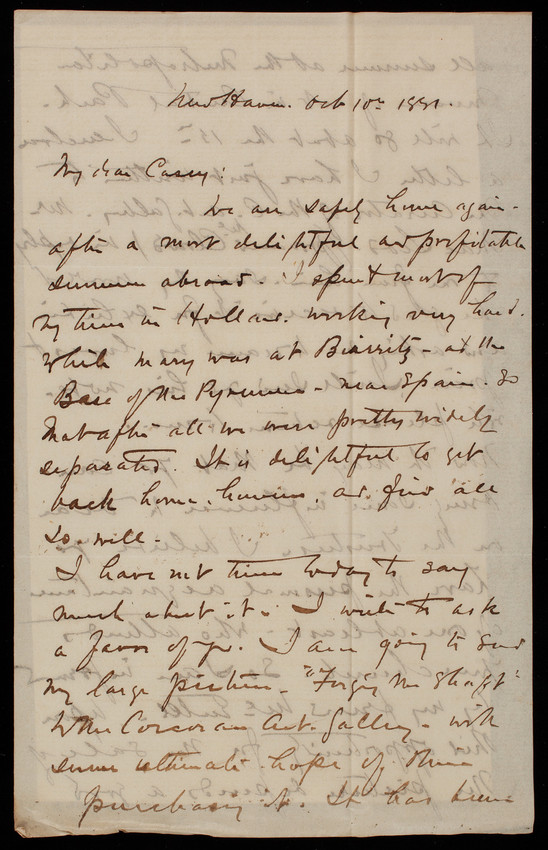 New Haven. Oct 10th 1881.
My dear Casey:
We are safely home again -
after a most delightful and profitable
summer abroad. I spent most of
my time in Holland. working very hard.
While Mary was at Biarritz - at the
Base of the Pyrenees - near Spain. So
that after all we were pretty widely
separated. It is delightful to get
back home, however, and find all
so well -
I have not time today to say
much about it. I write to ask
a favor of you. I am going to send
my large picture - "Forging the Shaft"
to the Corcoran Art-Gallery - with
some ultimate hope of their
purchasing it. It has been